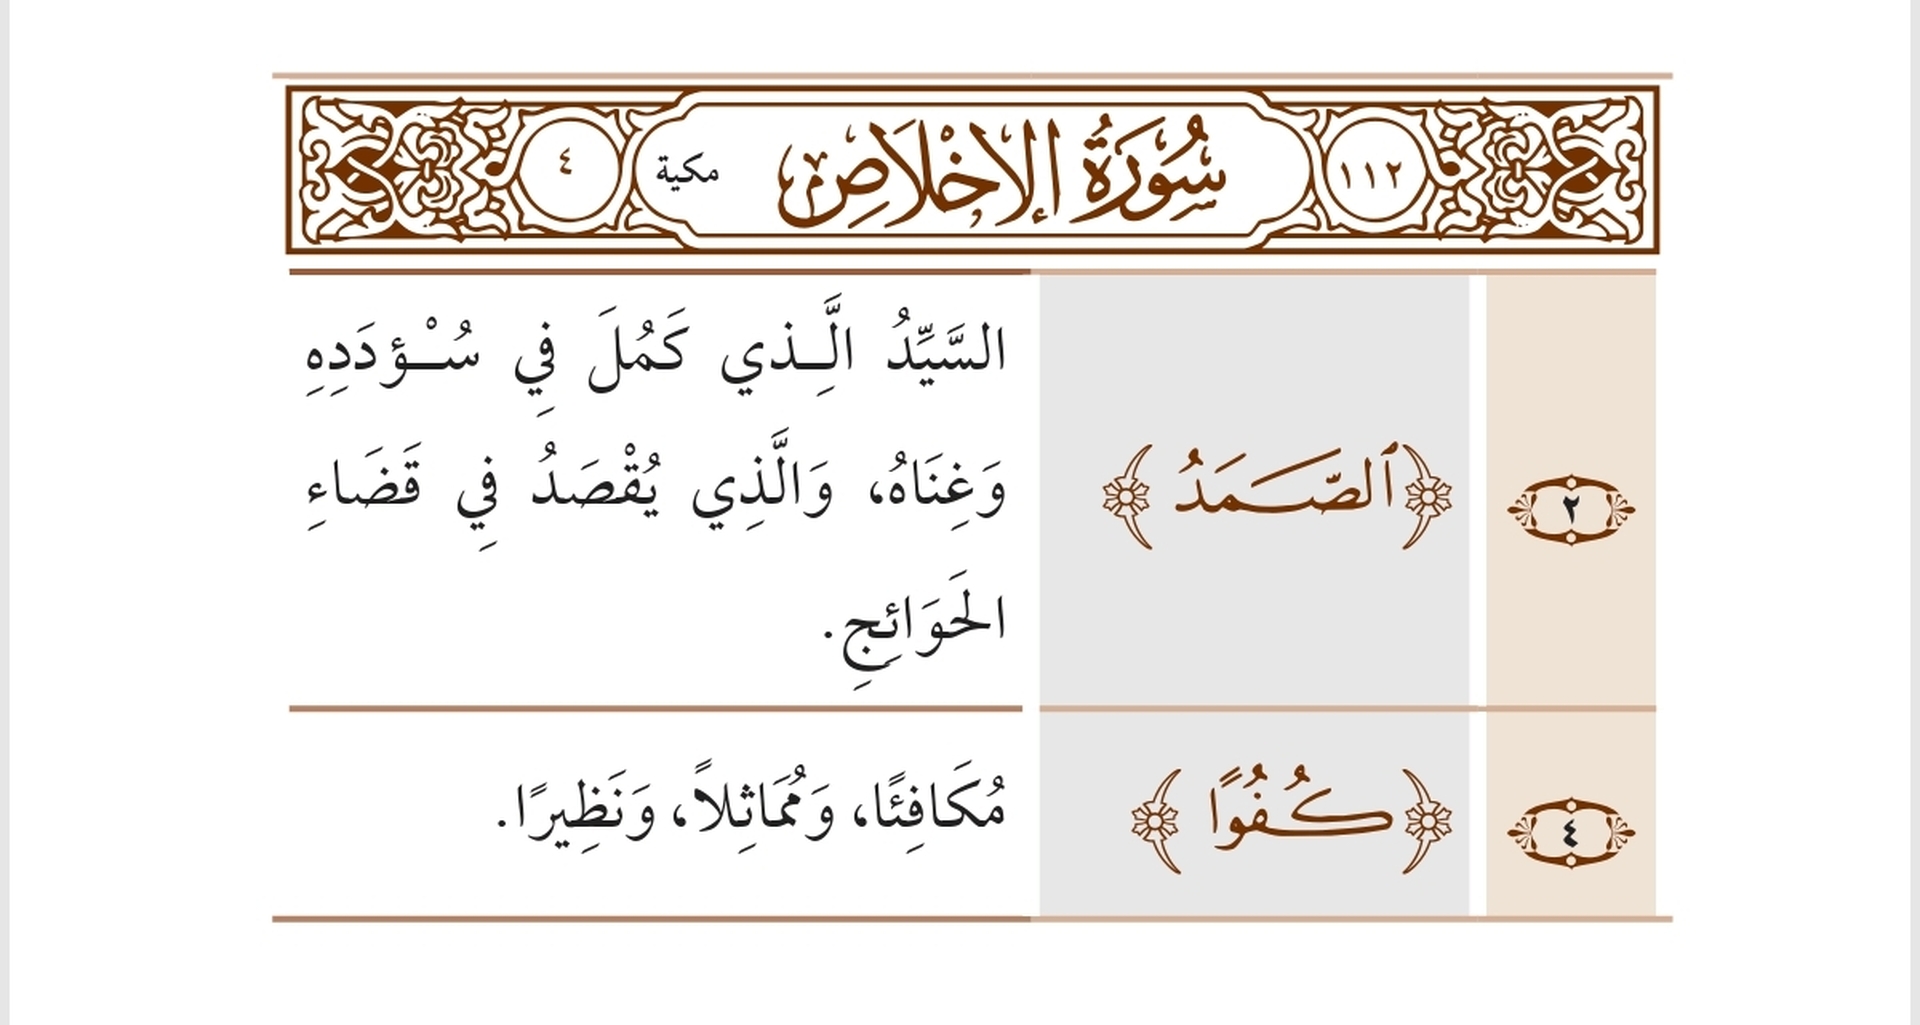 ١١٢ سُورَةُ الإِخْلَاصِ مكية ٤
٢ ﴿ٱلصَّمَدُ﴾ السَّيِّدُ الَّـذِي كَمُلَ فِي سُـؤْدَدِهِ
وَغِنَاهُ، وَالَّذِي يُقْصَدُ فِي قَضَاءِ
الحَوَائِجِ.
٤ ﴿كُفُوًا﴾ مُكَافِئًا، وَمُمَاثِلاً، وَنَظِيرًا.